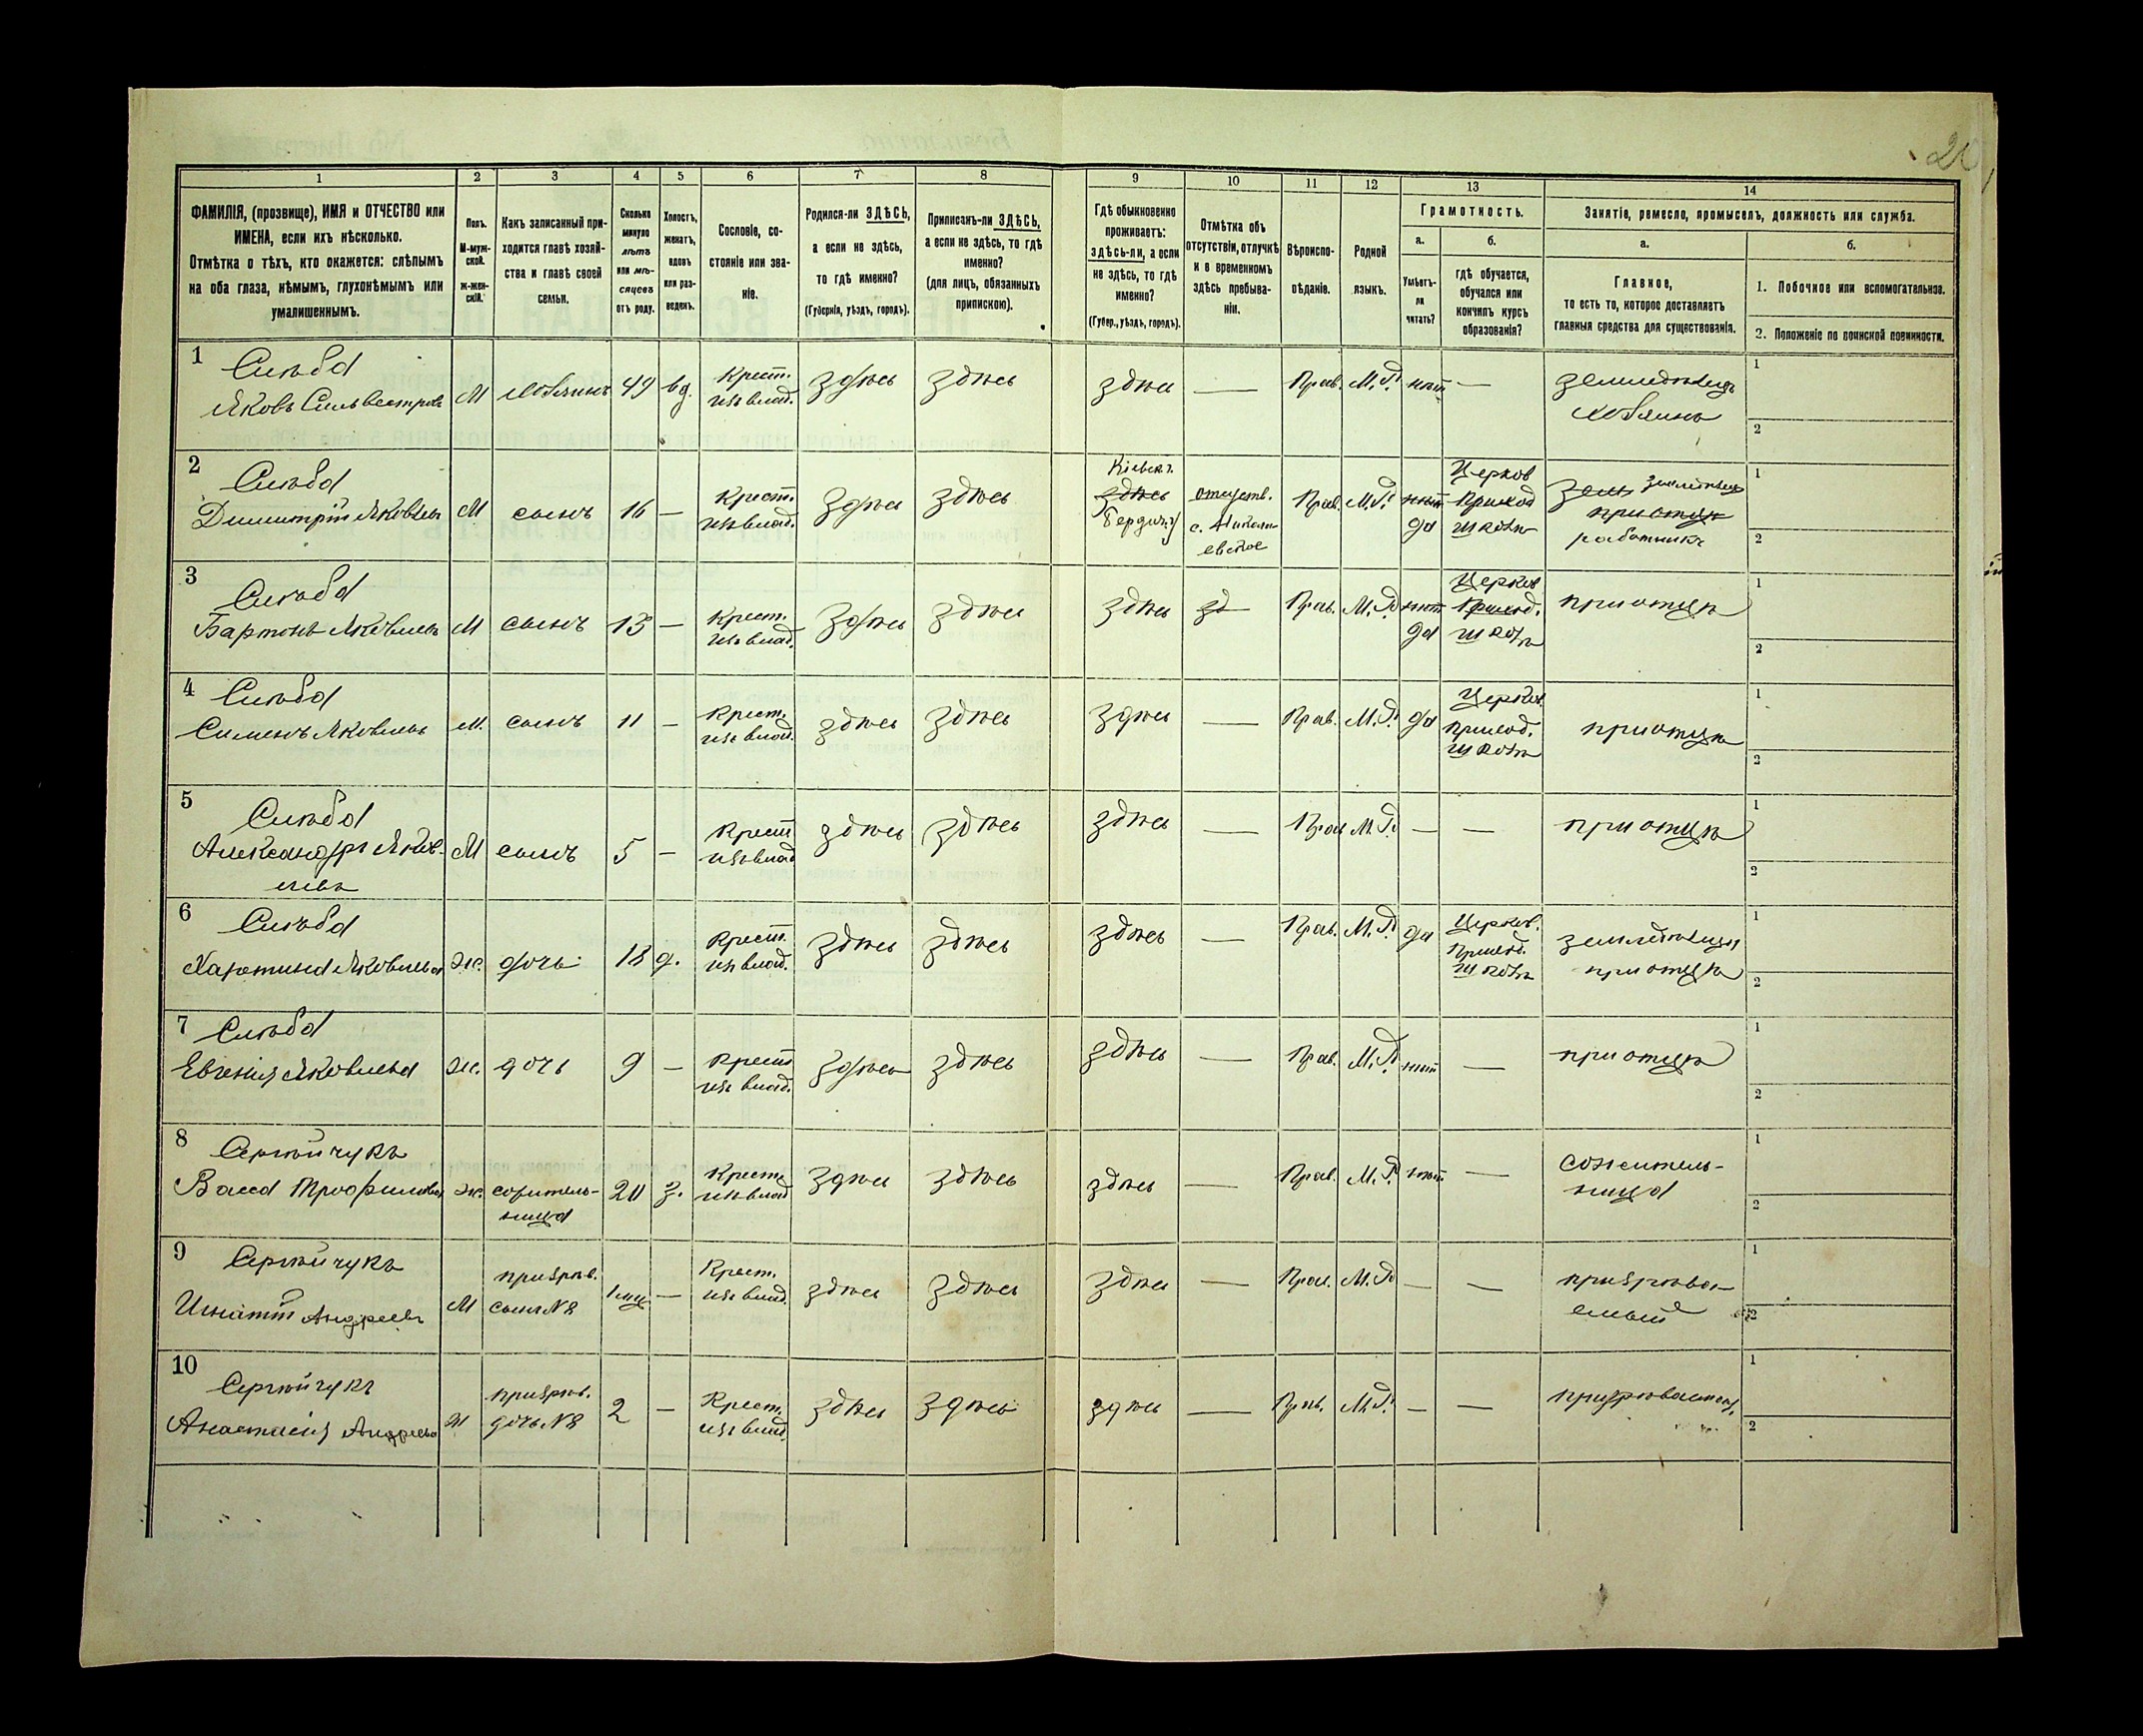 1 2 3 4 5 6 7 8 9 10 11 12 13 14
ФАМИЛІЯ, (прозвище), ИМЯ и ОТЧЕСТВО или
ИМЕНА, если ихъ нѣсколько.
Отмѣтка о тѣхъ, кто окажется: слѣпымъ
на оба глаза, нѣмымъ, глухонѣмымъ или
умалишеннымъ.
Полъ.
М-муж-
ской.
Ж-жен-
скій.
Какъ записанный при-
ходится главѣ хозяй-
ства и главѣ своей
семьи.
Сколько
минуло
лѣтъ
или мѣ-
сяцевъ
отъ роду.
Холостъ,
женатъ,
вдовъ
или раз-
веденъ.
Сословіе, со-
стояніе или зва-
ніе.
Родился-ли ЗДѢСЬ,
а если не здѣсь,
то гдѣ именно?
(Губернія, уѣздъ, городъ).
Приписанъ-ли ЗДѢСЬ,
а если не здѣсь, то гдѣ
именно?
(для лицъ, обязанныхъ
припискою).
Гдѣ обыкновенно
проживаетъ:
здѣсь-ли, а если
не здѣсь, то гдѣ
именно?
(Губер., уѣздъ, городъ).
Отмѣтка объ
отсутствіи, отлучкѣ
и о временномъ
здѣсь пребыва-
ніи.
Вѣроиспо-
вѣданіе.
Родной
языкъ.
Грамотность.
а.
Умѣетъ-
ли
читать?
б.
гдѣ обучается,
обучался или
кончилъ курсъ
образованія?
Занятіе, ремесло, промыселъ, должность или служба.
а.
Главное,
то есть то, которое доставляетъ
главныя средства для существованія.
б.
1. Побочное или вспомогательное.
2. Положеніе по воинской повинности.
1 Яковъ Сильвестровъ М 49 вд. Крест. изъ влад. здѣсь здѣсь здѣсь — Прав. М.Р. нѣт —
земледѣлецъ
хозяинъ
1
2
2 Димитрій Яковлевъ М сынъ 16 — Крест. изъ влад. здѣсь здѣсь
Кіевск. г.
здѣсь
Бердич. у
отсутств.
с. Никола-
евское
Прав. М.Р. нѣт
да
Церков
Приход
школѣ
земледѣлец
при отцѣ
работникъ
1
2
3 Яковлевъ М сынъ 13 — Крест. изъ влад. здѣсь здѣсь здѣсь зд Прав. М.Р. нѣт
да
Церков
Приход.
школѣ
при отцѣ
1
2
4 Сименъ Яковлевъ М. сынъ 11 — Крест. изъ влад. здѣсь здѣсь здѣсь — Прав. М.Р. да
Церков.
приход.
школѣ
при отцѣ
1
2
5 Александръ Яков-
левъ
М сынъ 5 — Крест изъ влад здѣсь здѣсь здѣсь — Прав М.Р. — — при отцѣ
1
2
6 Харитина Яковлева Ж. дочь 18 д. Крест. изъ влад. здѣсь здѣсь здѣсь — Прав. М.Р. да
Церков.
Приход.
школѣ
при отцѣ
1
2
7 Евгенія Яковлева Ж. дочь 9 — Крест изъ влад. здѣсь здѣсь здѣсь — Прав. М.Р. нѣт — при отцѣ
1
2
8 Сергѣйчукъ
Васса Трофимова Ж.
20 з. Крест. изъ влад здѣсь здѣсь здѣсь — Прав. М.Р. нѣт —
сожитель-
ница
1
2
9 Сергѣйчукъ
Игнатій Андреевъ М
призрѣв.
сынъ №8
1 мѣс — Крест. изъ влад. здѣсь здѣсь здѣсь — Прав. М.Р. — —
призрѣва-
емый
1
2
10 Сергѣйчукъ
Анастасія Андреева Ж
призрѣв.
дочь №8
2 — Крест. изъ влад. здѣсь здѣсь здѣсь — Прав. М.Р. — —
1
2